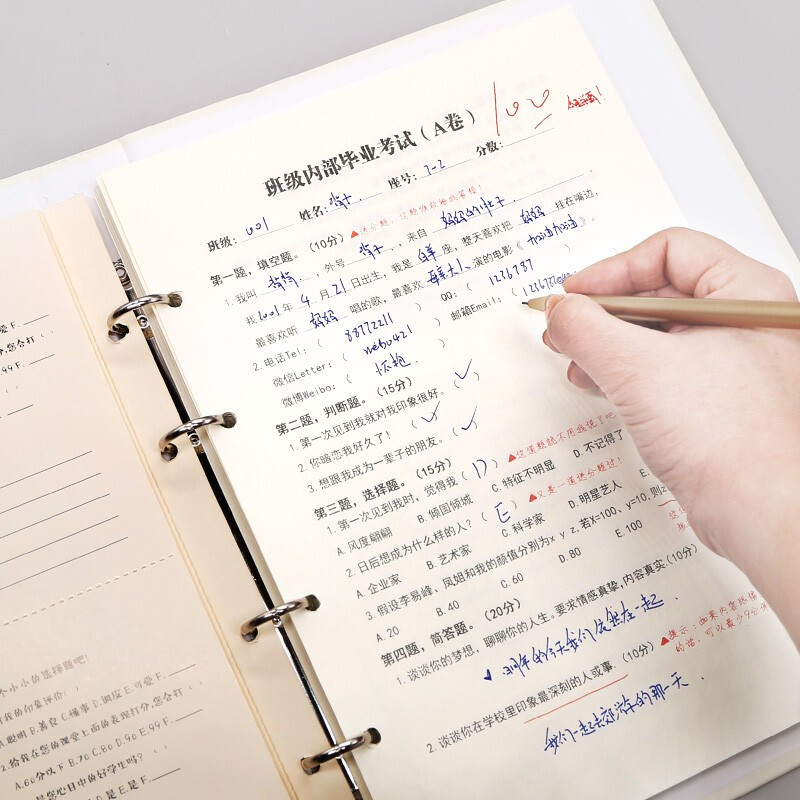 100
班级内部毕业考试（A卷）
班级：001 姓名： 座号：7-2 分数：
第一题，填空题。（10分）▲送分题，这题谁敢给我零蛋！
1.我叫 ，外号 ，来自 妈妈的肚子 。
我1001年4月21日出生，我是 座，整天喜欢把 妈妈 挂在嘴边，
最喜欢听 妈妈 唱的歌，最喜欢 演的电影《加油加油》。
2.电话Tel：（ 88772211 ） QQ：（ 1236787 ）
微信Letter：（ weibo421 ） 邮箱Email：（
微博Weibo：（ ）
第二题，判断题。（15分）
1.第一次见到我就对我印象很好。（✓）
2.你暗恋我好久了！（✓）
3.想跟我成为一辈子的朋友。（✓）
第三题，选择题。（15分）
1.第一次见到我时，觉得我（D）▲这道题就不用我说了吧
A.风度翩翩 B.倾国倾城 C.特征不明显 D.不记得了 E.
2.日后想成为什么样的人？（E）▲又是一道送分题过！
A.企业家 B.艺术家 C.科学家 D.明星艺人 E.
3.假设李易峰、凤姐和我的颜值分别为x y z,若x=100、y=10,则z
A.20 B.40 C.60 D.80 E.100
第四题，简答题。（20分）
1.谈谈你的梦想，聊聊你的人生。要求情感真挚,内容真实(10分)
的今天我们依然在一起.
▲提示：如果内容
的话，可以最少9分
2.谈谈你在学校里印象最深刻的人或事.（10分）
我们一起去郊游的那一天.
爱 F.
您会打（ ）
99 F.
个小小的选择题吧！
对我的印象评价（ ）
A.聪明 B.善良 C.懂事 D.调皮 E.可爱 F.
2.给我在您的课堂上面的表现打分,您会打（ ）
A.60分以下 B.70 C.80 D.90 E.99 F.
是您心目中的好学生吗？（ ）
D.是 E.是 F.